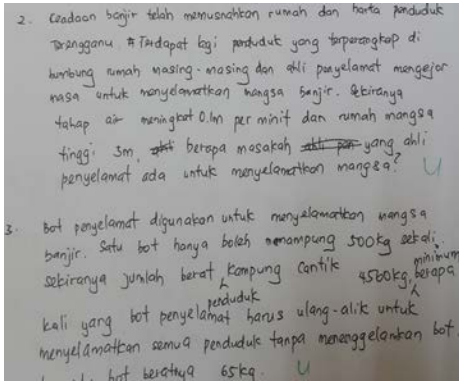 2. Keadaan banjir telah memusnahkan rumah dan harta penduduk
Terengganu. Terdapat lagi penduduk yang terperangkap di
bumbung rumah masing-masing dan ahli penyelamat mengejar
masa untuk menyelamatkan mangsa banjir. Sekiranya
tahap air meningkat 0.1m per minit dan rumah mangsa
tinggi 3m, berapa masakah yang ahli
penyelamat ada untuk menyelamatkan mangsa?
3. Bot penyelamat digunakan untuk menyelamatkan mangsa
banjir. Satu bot hanya boleh menampung 500kg sekali.
Sekiranya jumlah berat penduduk Kampung Cantik 4560kg, minimum berapa
kali yang bot penyelamat harus ulang-alik untuk
menyelamatkan semua penduduk tanpa menenggelamkan bot.
bot beratnya 65kg.